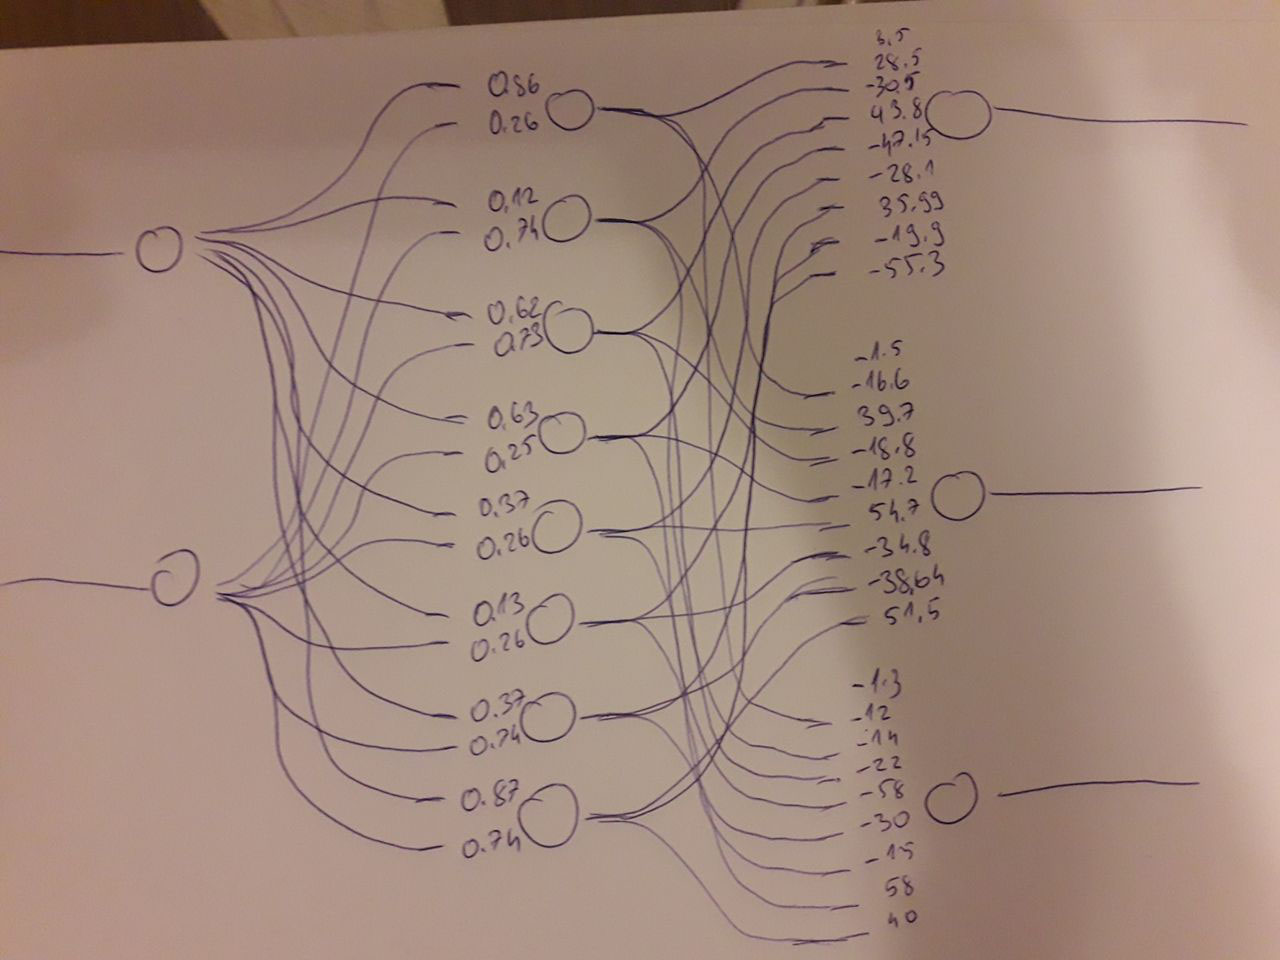 0.86
0.26
0.12
0.74
0.62
0.73
0.63
0.25
0.37
0.26
0.13
0.26
0.37
0.74
0.87
0.74
28.5
-30.5
43.8
-47.15
-28.1
35.99
-19.9
-55.3
-1.5
-16.6
39.7
-18.8
-17.2
54.7
-34.8
-38,64
51,5
-1.3
-12
-14
-22
-58
-30
-15
58
40